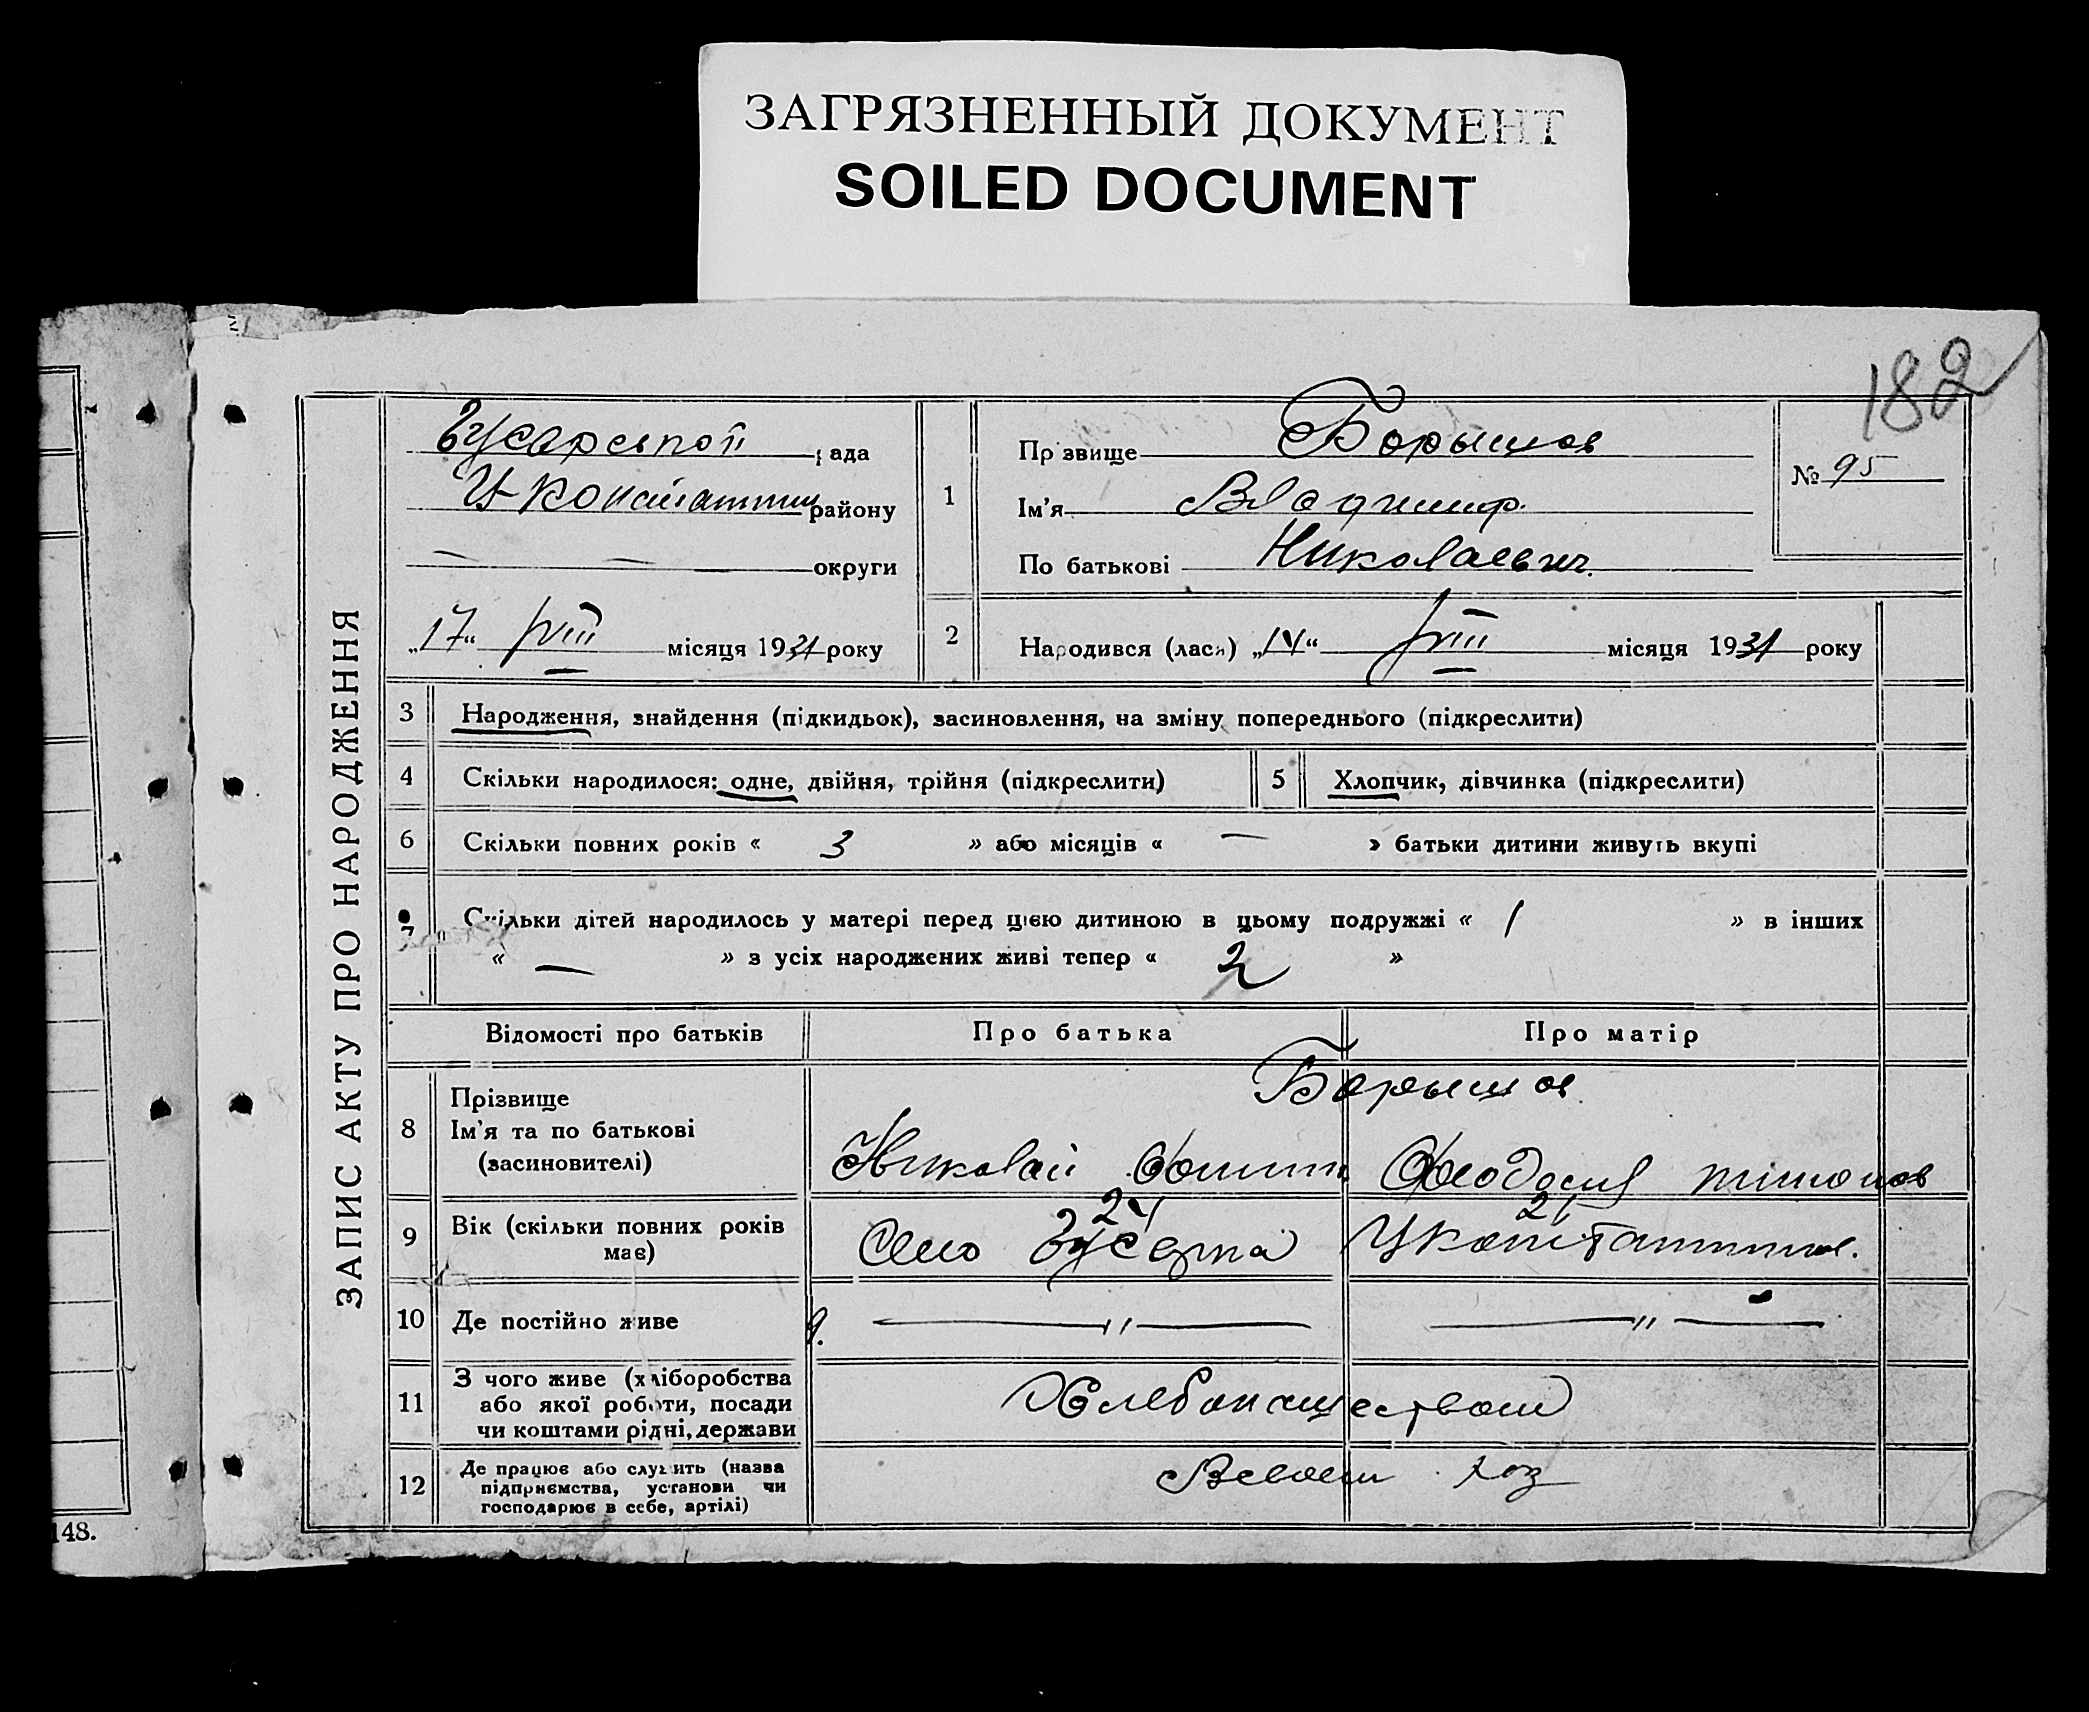 ЗАГРЯЗНЕННЫЙ ДОКУМЕНТ
SOILED DOCUMENT
182
ЗАПИС АКТУ ПРО НАРОДЖЕННЯ
Гусарської рада
району
— — — округи
„17“ VIII місяця 1931 року
1
Прізвище Борышов
Ім'я Владимир.
По батькові Николаевич.
№ 95
2 Народився (лася) „14“ VIII місяця 1931 року
3 Народження, знайдення (підкидьок), засиновлення, на зміну попереднього (підкреслити)
4 Скільки народилося: одне, двійня, трійня (підкреслити)
5 Хлопчик, дівчинка (підкреслити)
6 Скільки повних років « 3 » або місяців « — » батьки дитини живуть вкупі
7 Скільки дітей народилось у матері перед цією дитиною в цьому подружжі « 1 » в інших
« — » з усіх народжених живі тепер « 2 »
Відомості про батьків Про батька Про матір
Борышов
8 Прізвище
Ім'я та по батькові
(засиновителі)
Николай Феодосия
9 Вік (скільки повних років
має)
24 21
Село Гусарка
10 Де постійно живе — " — — " —
11 З чого живе (хліборобства
або якої роботи, посади
чи коштами рідні, держави
Хлебопашеством
12 Де працює або служить (назва
підприємства, установи чи
господарює в себе, артілі)
В своем хоз
148.